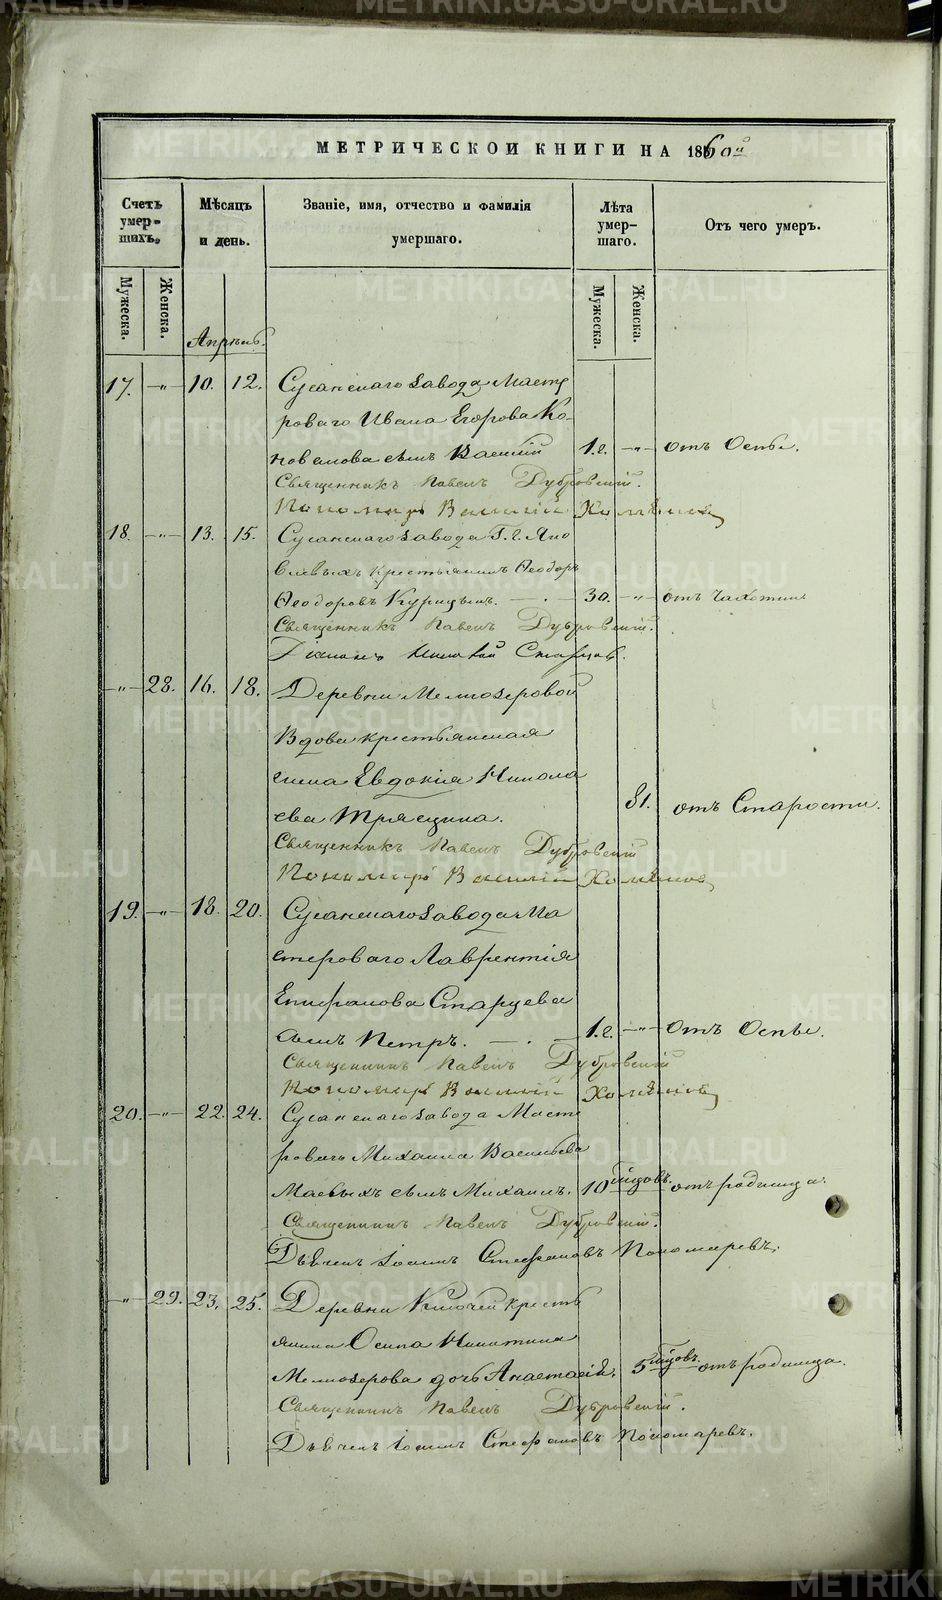 МЕТРИЧЕСКОЙ КНИГИ НА 1860й
Счетъ умер-шихъ.
Мѣсяцъ и день.
Званіе, имя, отчество и фамилія умершаго.
Лѣта умер-шаго.
Отъ чего умеръ.
Мужеска. Женска.
Мужеска. Женска.
Апрѣль.
17. -„- 10. 12. Сусанскаго Завода Масте
роваго Ивана Егорова Ко-
новалова сынъ Василій 1.г. -„- отъ Оспы.
Священникъ Павелъ Дубровскій.
Пономарь Василій Хомяковъ
18. -„- 13. 15. Сусанскаго Завода Г.г. Яко
влевыхъ крестьянинъ Ѳеодоръ
Ѳеодоровъ Курицынъ. 30. -„- отъ Чахотки.
Священникъ Павелъ Дубровскій.
Діаконъ Николай Старцевъ.
-„- 28. 16. 18. Деревни Мелкозеровой
Вдова крестьянская
жена Евдокія Никола
ева Трясцина. 81. отъ Старости.
Священникъ Павелъ Дубровскій
Пономарь Василій Хомяковъ
19. -„- 18. 20. Сусанскаго Завода Ма
стероваго Лаврентія
Епифанова Старцева
сынъ Петръ. 1.г. -„- отъ Оспы.
Священникъ Павелъ Дубровскій
Пономарь Василій Хомяковъ
20. -„- 22. 24. Сусанскаго Завода Масте
роваго Михаила Васильева
сынъ Михаилъ. 10 отъ родимца.
Священникъ Павелъ Дубровскій.
Дьячекъ Іоаннъ Стефановъ Пономаревъ.
-„- 29. 23. 25. Деревни кресть
янина Осипа Никитина
Мелкозерова дочь Анастасія. 5 отъ родимца.
Священникъ Павелъ Дубровскій.
Дьячекъ Іоаннъ Стефановъ Пономаревъ.
METRIKI.GASO-URAL.RU